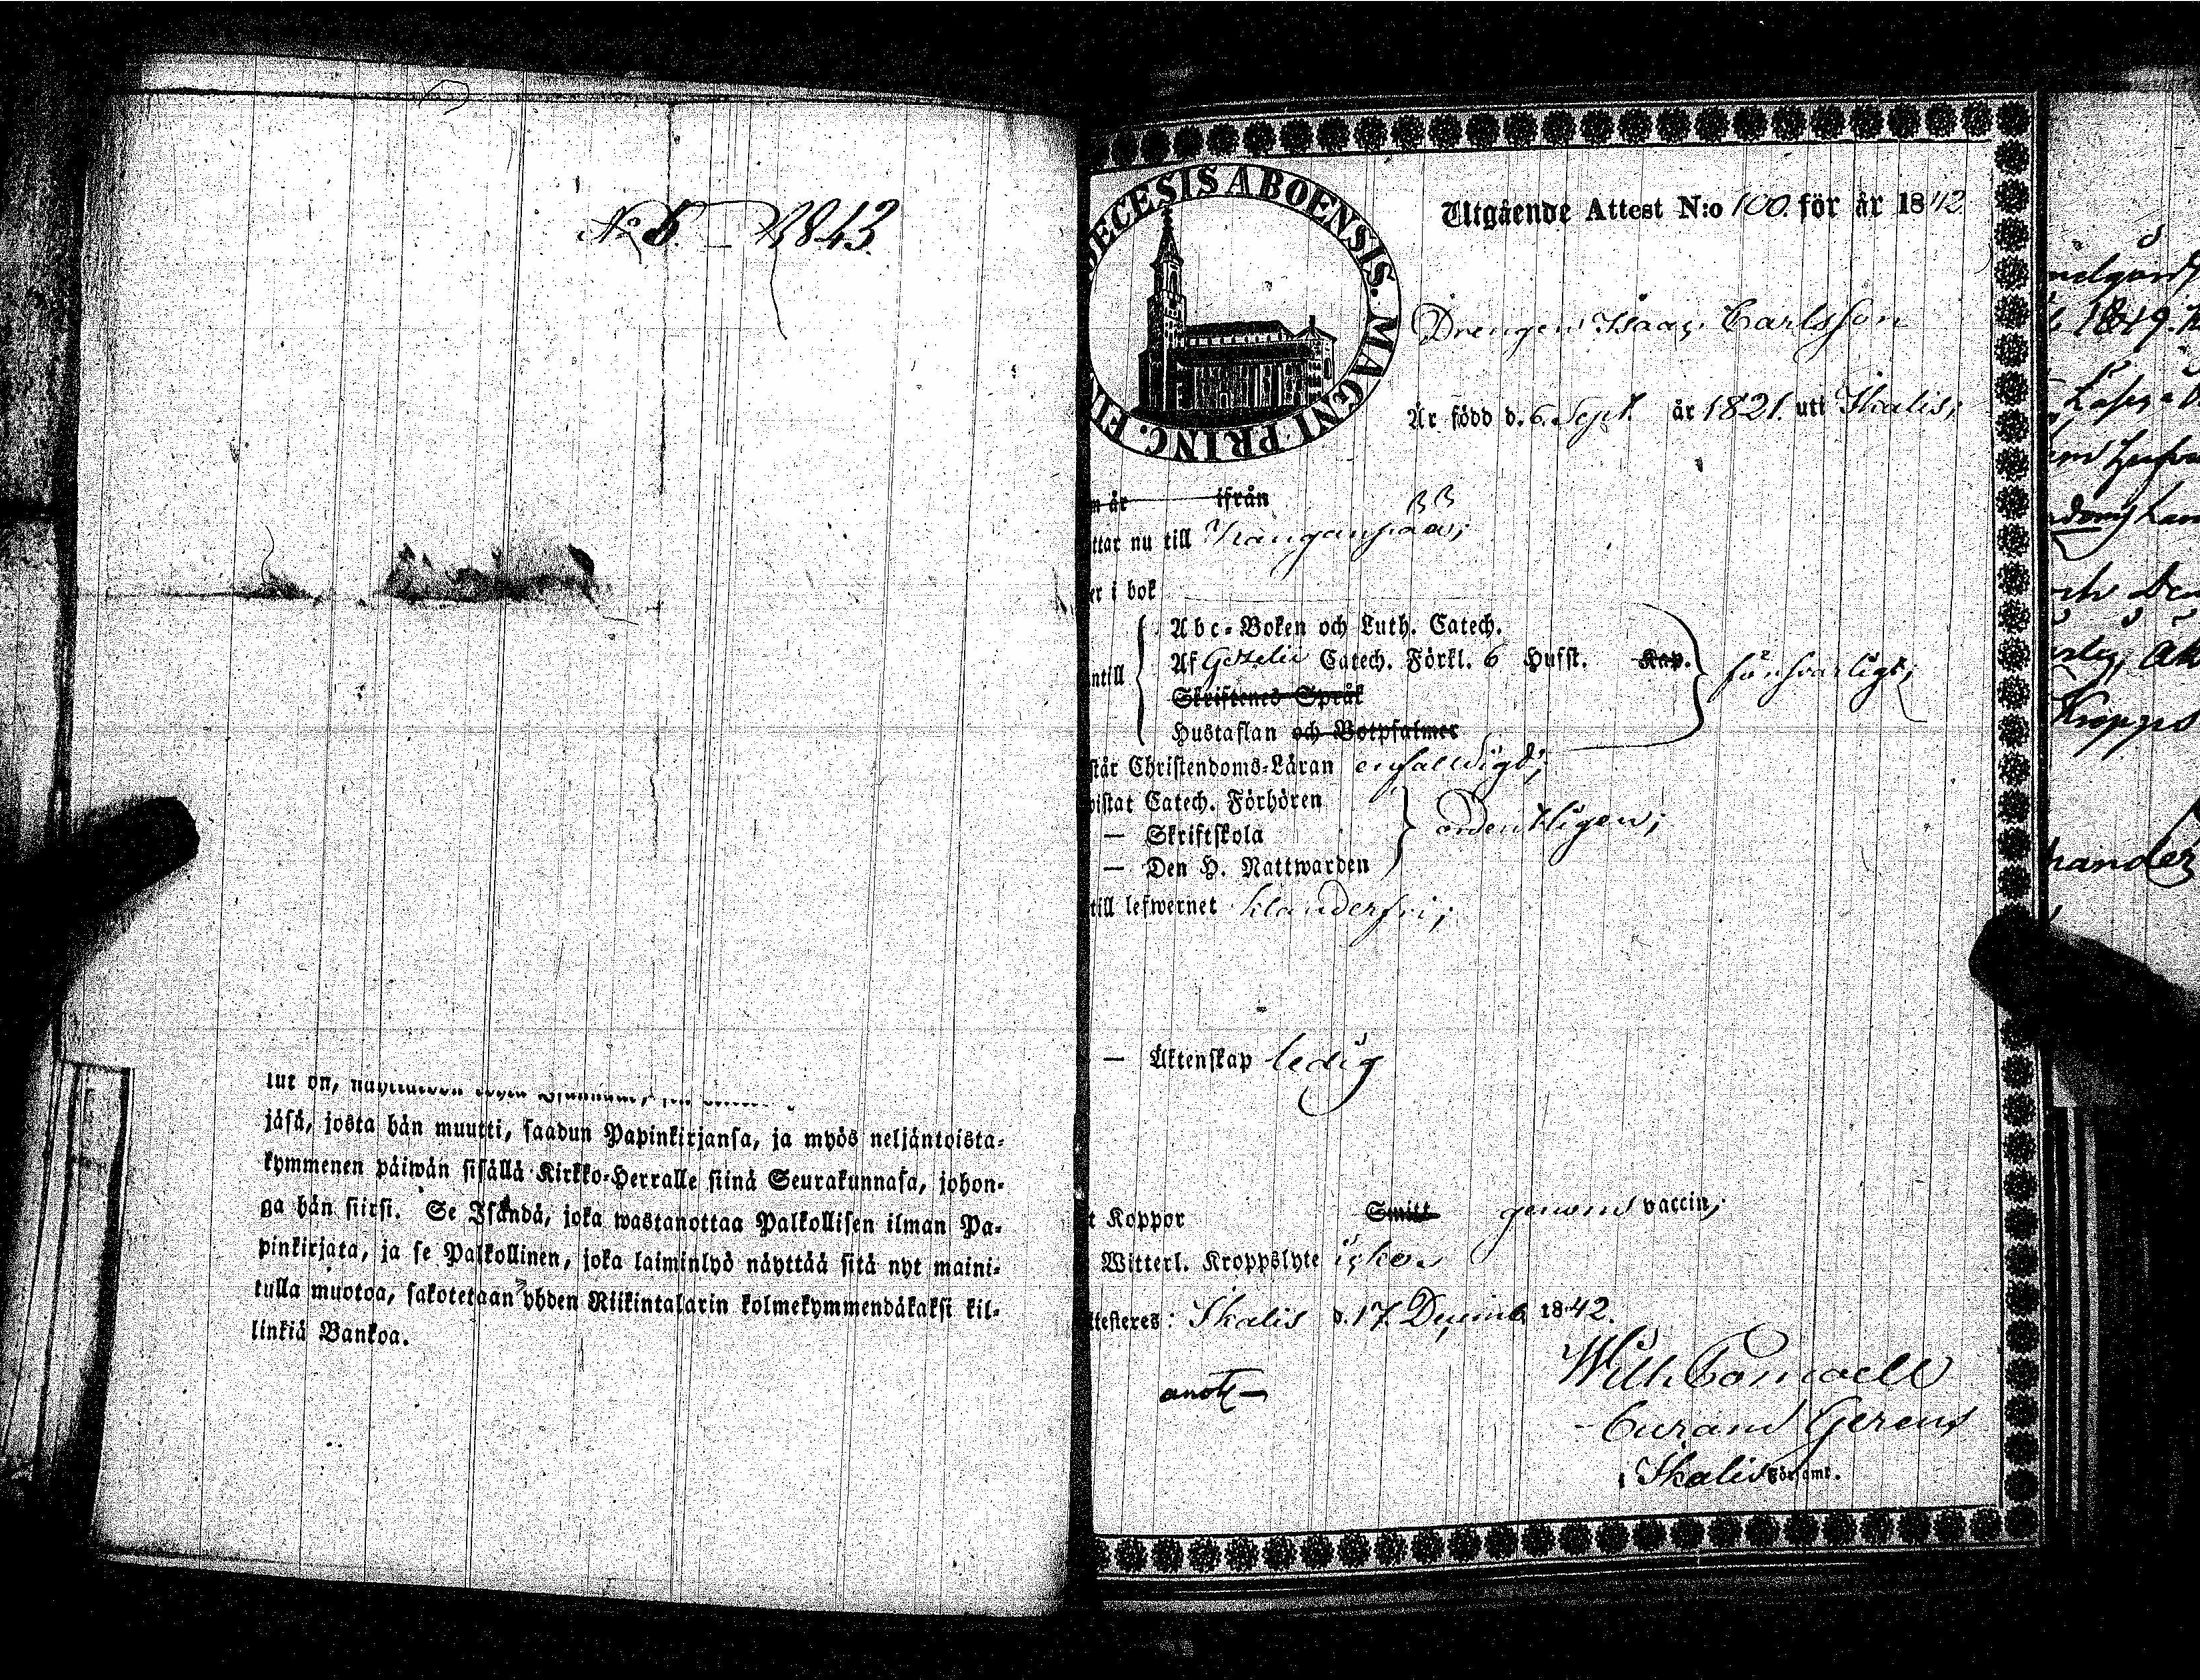 No 8. 1843.
jäsä, josta hän muutti, saadun Papinkirjansa, ja myös neljäntoista-
kymmenen päiwän sisällä Kirkko-Herralle siinä Seurakunnasa, johon-
ga hän siirsi. Se Isändä, joka wastanottaa Palkollisen ilman Pa-
pinkirjata, ja se Palkollinen, joka laiminlyö näyttää sitä nyt maini-
tulla muotoa, sakotetaan yhden Riikintalarin kolmekymmendäkaksi kil-
linkiä Bankoa.
DECESIS ABOENSIS. MAGNI PRINC. FIN
Utgående Attest N:o 100. för år 1842.
Drengen Isaac Carlsson
Är född d. 6. Sept. år 1821. uti Skalis;
n år ifrån
ttar nu till Kanganpää;
er i bok
ntill
Abc-Boken och Luth. Catech.
Af Gezelii Catech. Förkl. 6 Hufst. Kap.
försvarligt;
Skriftenes Språk
Hustaflan och Botpsalmer
står Christendoms-Läran enfaldigt;
vistat Catech. Förhören
— Skriftskola
ordentligen;
— Den H. Nattwarden
till lefwernet klanderfri;
— Äktenskap ledig
t Koppor Smitt genom vaccin;
Witterl. Kroppslyte icke.
ttesteres: Skalis d. 17. Decemb. 1842.
anot
Wilh.
Curam Gerens
i Skalis Församl.